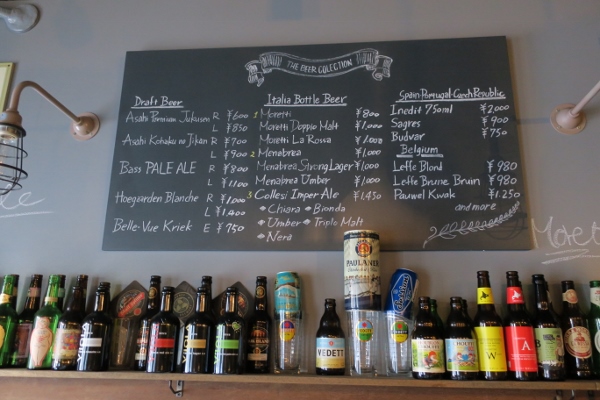 THE BEER COLECTION
Draft Beer
Asahi Premium Jukusen R ¥600
L ¥850
Asahi Kohaku no Jikan R ¥700
L ¥900
Bass PALE ALE R ¥800
L ¥1,100
Hoegaarden Blanche R ¥1,000
L ¥1,400
Belle-Vue Kriek E ¥750
Italia Bottle Beer
1 Moretti ¥800
Moretti Doppio Malt ¥1,000
Moretti La Rossa ¥1,000
2 Menabrea ¥1,000
Menabrea Strong Lager ¥1,000
Menabrea Umber ¥1,000
3 Collesi Imper Ale ¥1,450
Chiara Bionda
Umber Triplo Malt
Nera
Spain・Portugal・Czech Republic
Inedit 750ml ¥2,000
Sagres ¥900
Budvar ¥750
Belgium
Leffe Blond ¥980
Leffe Brune Bruin ¥980
Pauwel Kwak ¥1,250
and more
Moretti
PAULANER
VEDETT
W
A